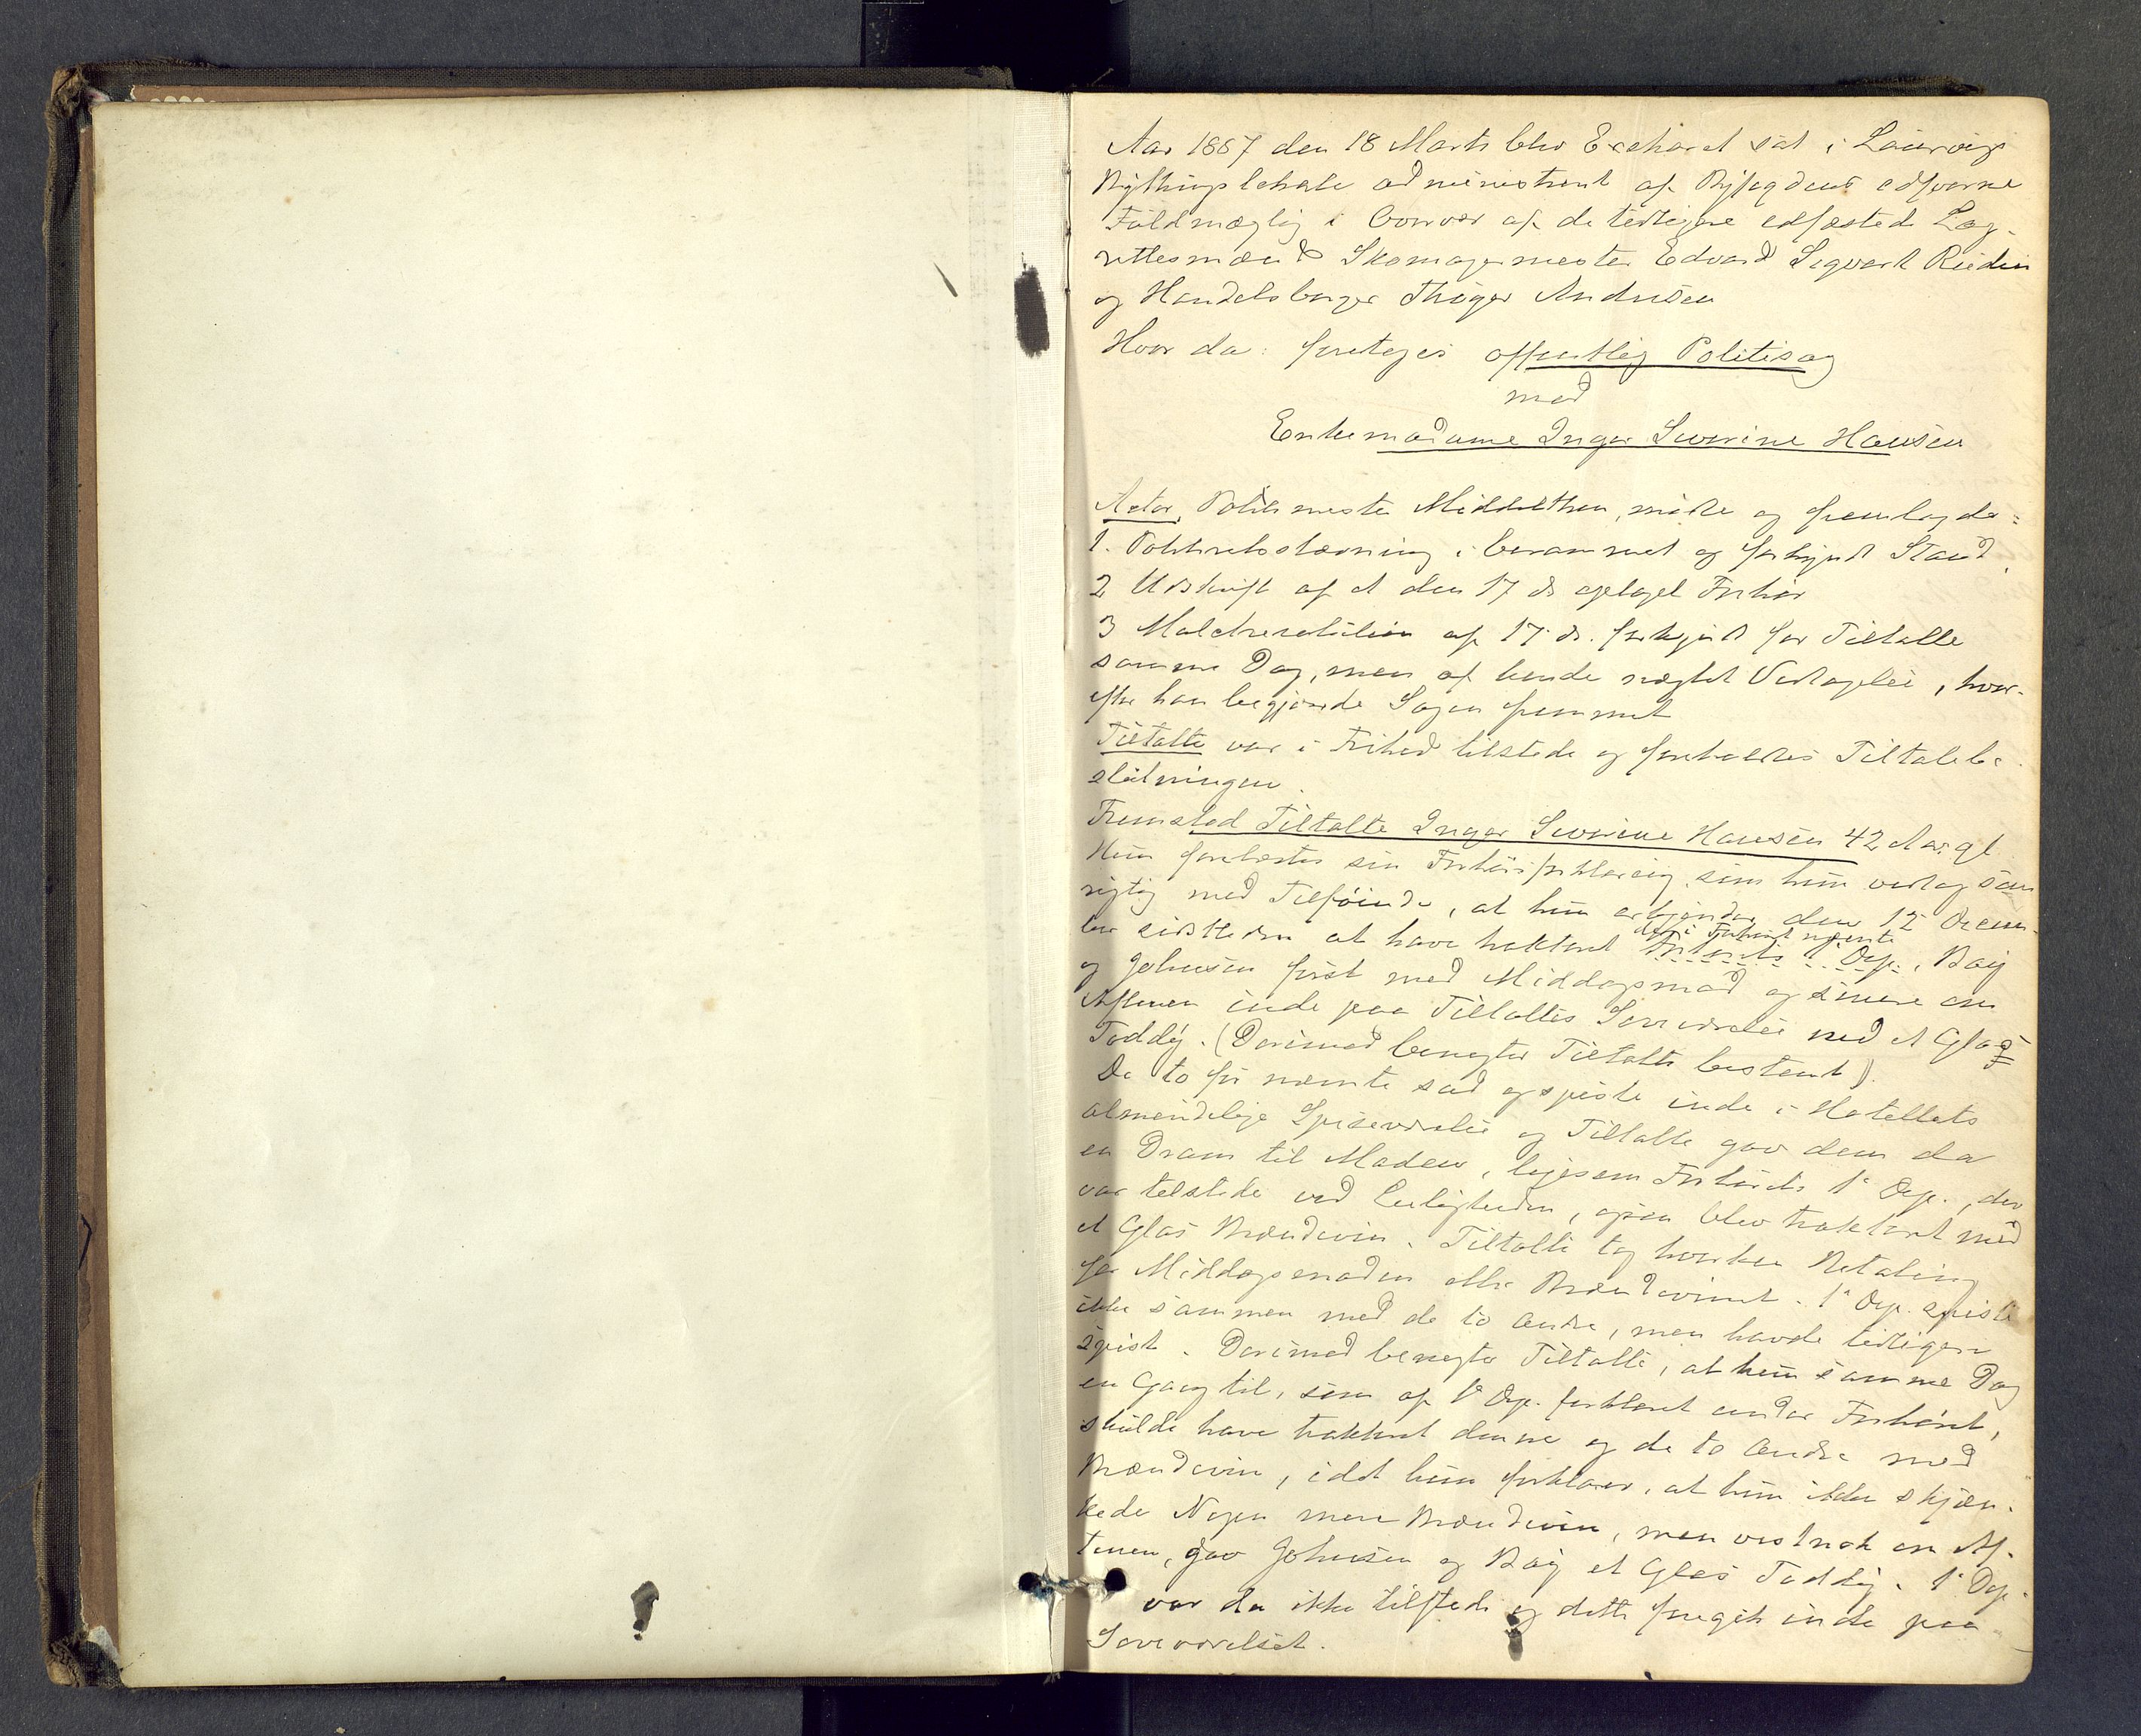 Aar 1887 den 18 Marts blev Extharet sat i Laurvigs
Bythingslokale administreret af Byfogdens edsvorne
Fuldmægtig i Overvær af de tidligere edfæstede Lag-
rettesmænd Skomagermester Edvard Sigvart
og Handelsborger Thøger Andresen
Hvor da: foretoges offentlig Politisag
mod
Enkemadame Inger Severine Hansen
Actor, Politimester Middelthon, mødte og fremlagde:
1. Politiretsstævning i berammet og forkyndt Stand.
2 Udskrift af et den 17 ds optaget Forhør
3 Mulctresolution af 17 ds. forkyndt for Tiltalte
samme Dag, men af hende nægtet Vedtagelse, hvor-
efter han begjærede Sagen fremmet
Tiltalte var i Frihed tilstede og foreholdtes Tiltalebe-
slutningen.
Fremstod Tiltalte Inger Severine Hansen 42 Aar gl
Hun forelæstes sin Forhørsforklaring, som hun vedtog som
rigtig med Tilføiende, at hun erkjender den 12 Decem-
ber sidstleden at have trakteret de i Forhøret nævnte Forhørets 1 Dep., Bøig
og Johnsen først med Middagsmad og senere om
Aftenen inde paa Tiltaltes Soveværelse med et Glas
Toddy. (Derimod benegter Tiltalte bestemt).
De to før nævnte sad og spiste inde i Hotellets
almindelige Spiseværelse og Tiltalte gav dem da
en Dram til Maden, ligesom Forhørets 1ste Dep., der
var tilstede ved Leiligheden, ogsaa blev trakteret med
et Glas Brændevin. Tiltalte tog hverken Betaling
for Middagsmaden eller Brændevinet. 1ste Dep. spiste
ikke sammen med de to Andre, men havde tidligere
spist. Derimod benegter Tiltalte, at hun samme Dag
en Gang til, som af 1ste Dep. forklaret under Forhøret,
skulde have trakteret denne og de to Andre med
Brændevin, idet hun forklarer, at hun ikke skjæn-
kede Nogen mere Brændevin, men vistnok om Af-
tenen, gav Johnsen og Bøig et Glas Toddy. 1ste Dep.
var da ikke tilstede og dette foregik inde paa
Soveværelset.